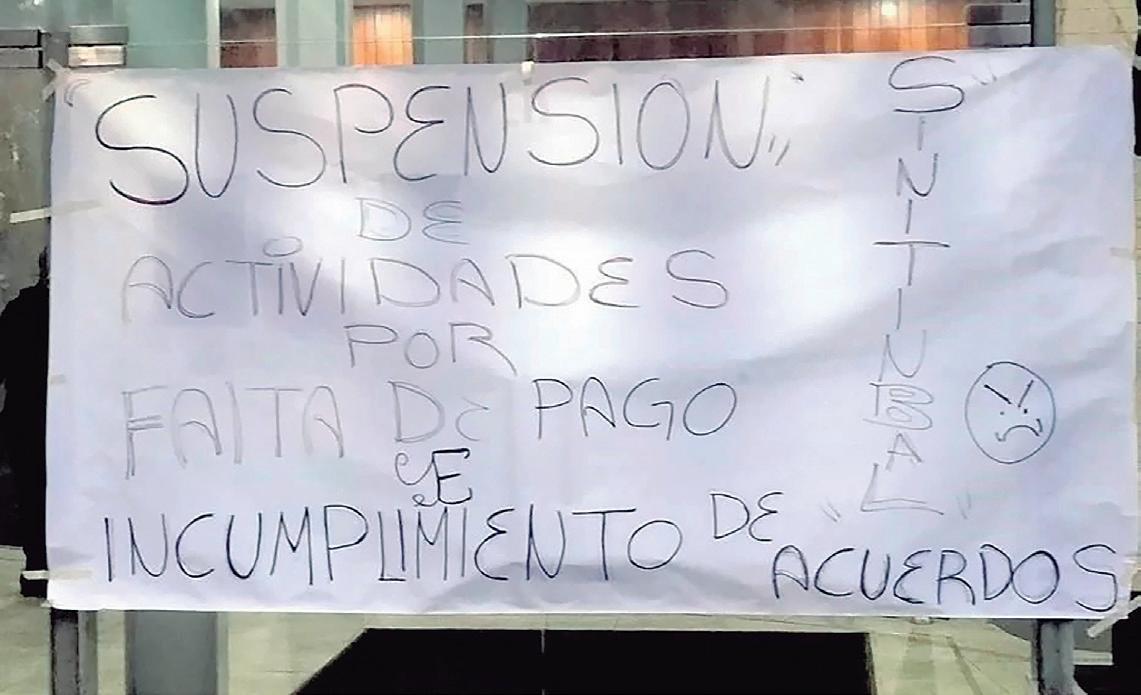 "SUSPENSION"
DE
ACTIVIDADES
POR
FALTA DE PAGO
E
INCUMPLIMIENTO DE
ACUERDOS
"SINITINBAL"